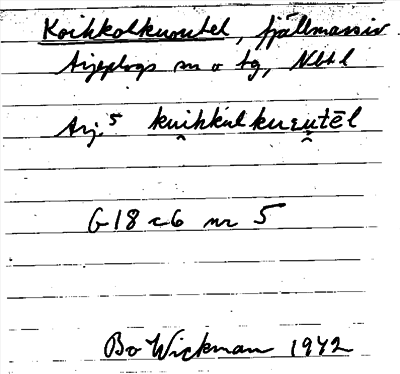 Koikkolkuoutel, fjällmassiv
Arjeplogs sn o tg, Nbtl
Arj.⁵ kuihkul kurutēl
G 18 c6 nr 5
Bo Wickman 1942